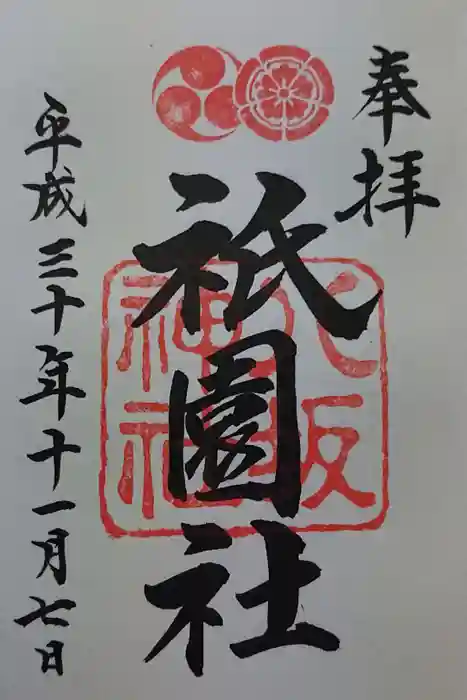 奉拝
祇園社
八坂
神社
平成三十年十一月七日